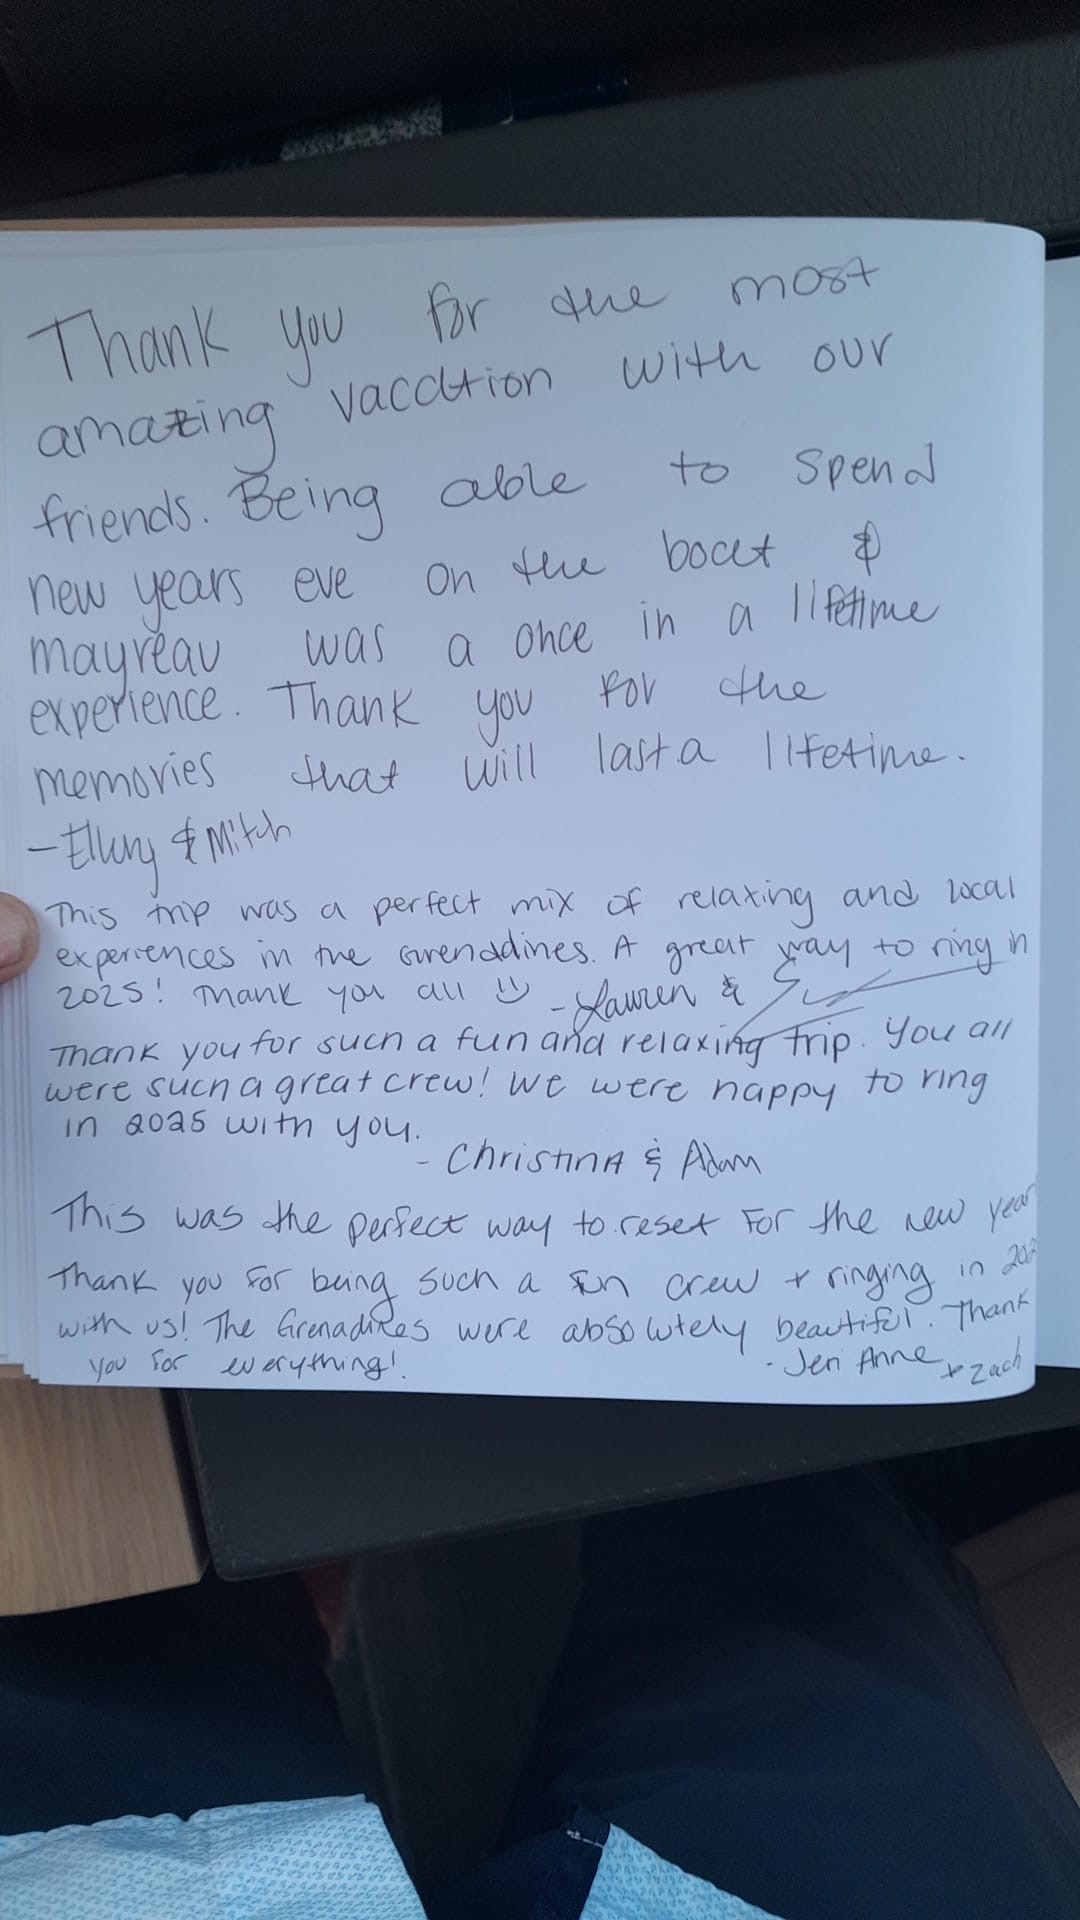 Thank you for the most
amazing vacation with our
friends. Being able to spend
new years eve on the boat &
mayreau was a once in a lifetime
experience. Thank you for the
memories that will last a lifetime.
- Ellery & Mitch
This trip was a perfect mix of relaxing and local
experiences in the Grenadines. A great way to ring in
2025! Thank you all :) - Lauren &
Thank you for such a fun and relaxing trip. You all
were such a great crew! We were happy to ring
in 2025 with you.
- Christina & Adam
This was the perfect way to reset for the new year
Thank you for being such a fun crew + ringing in 202
with us! The Grenadines were absolutely beautiful. Thank
you for everything!
- Jeri Anne + Zach